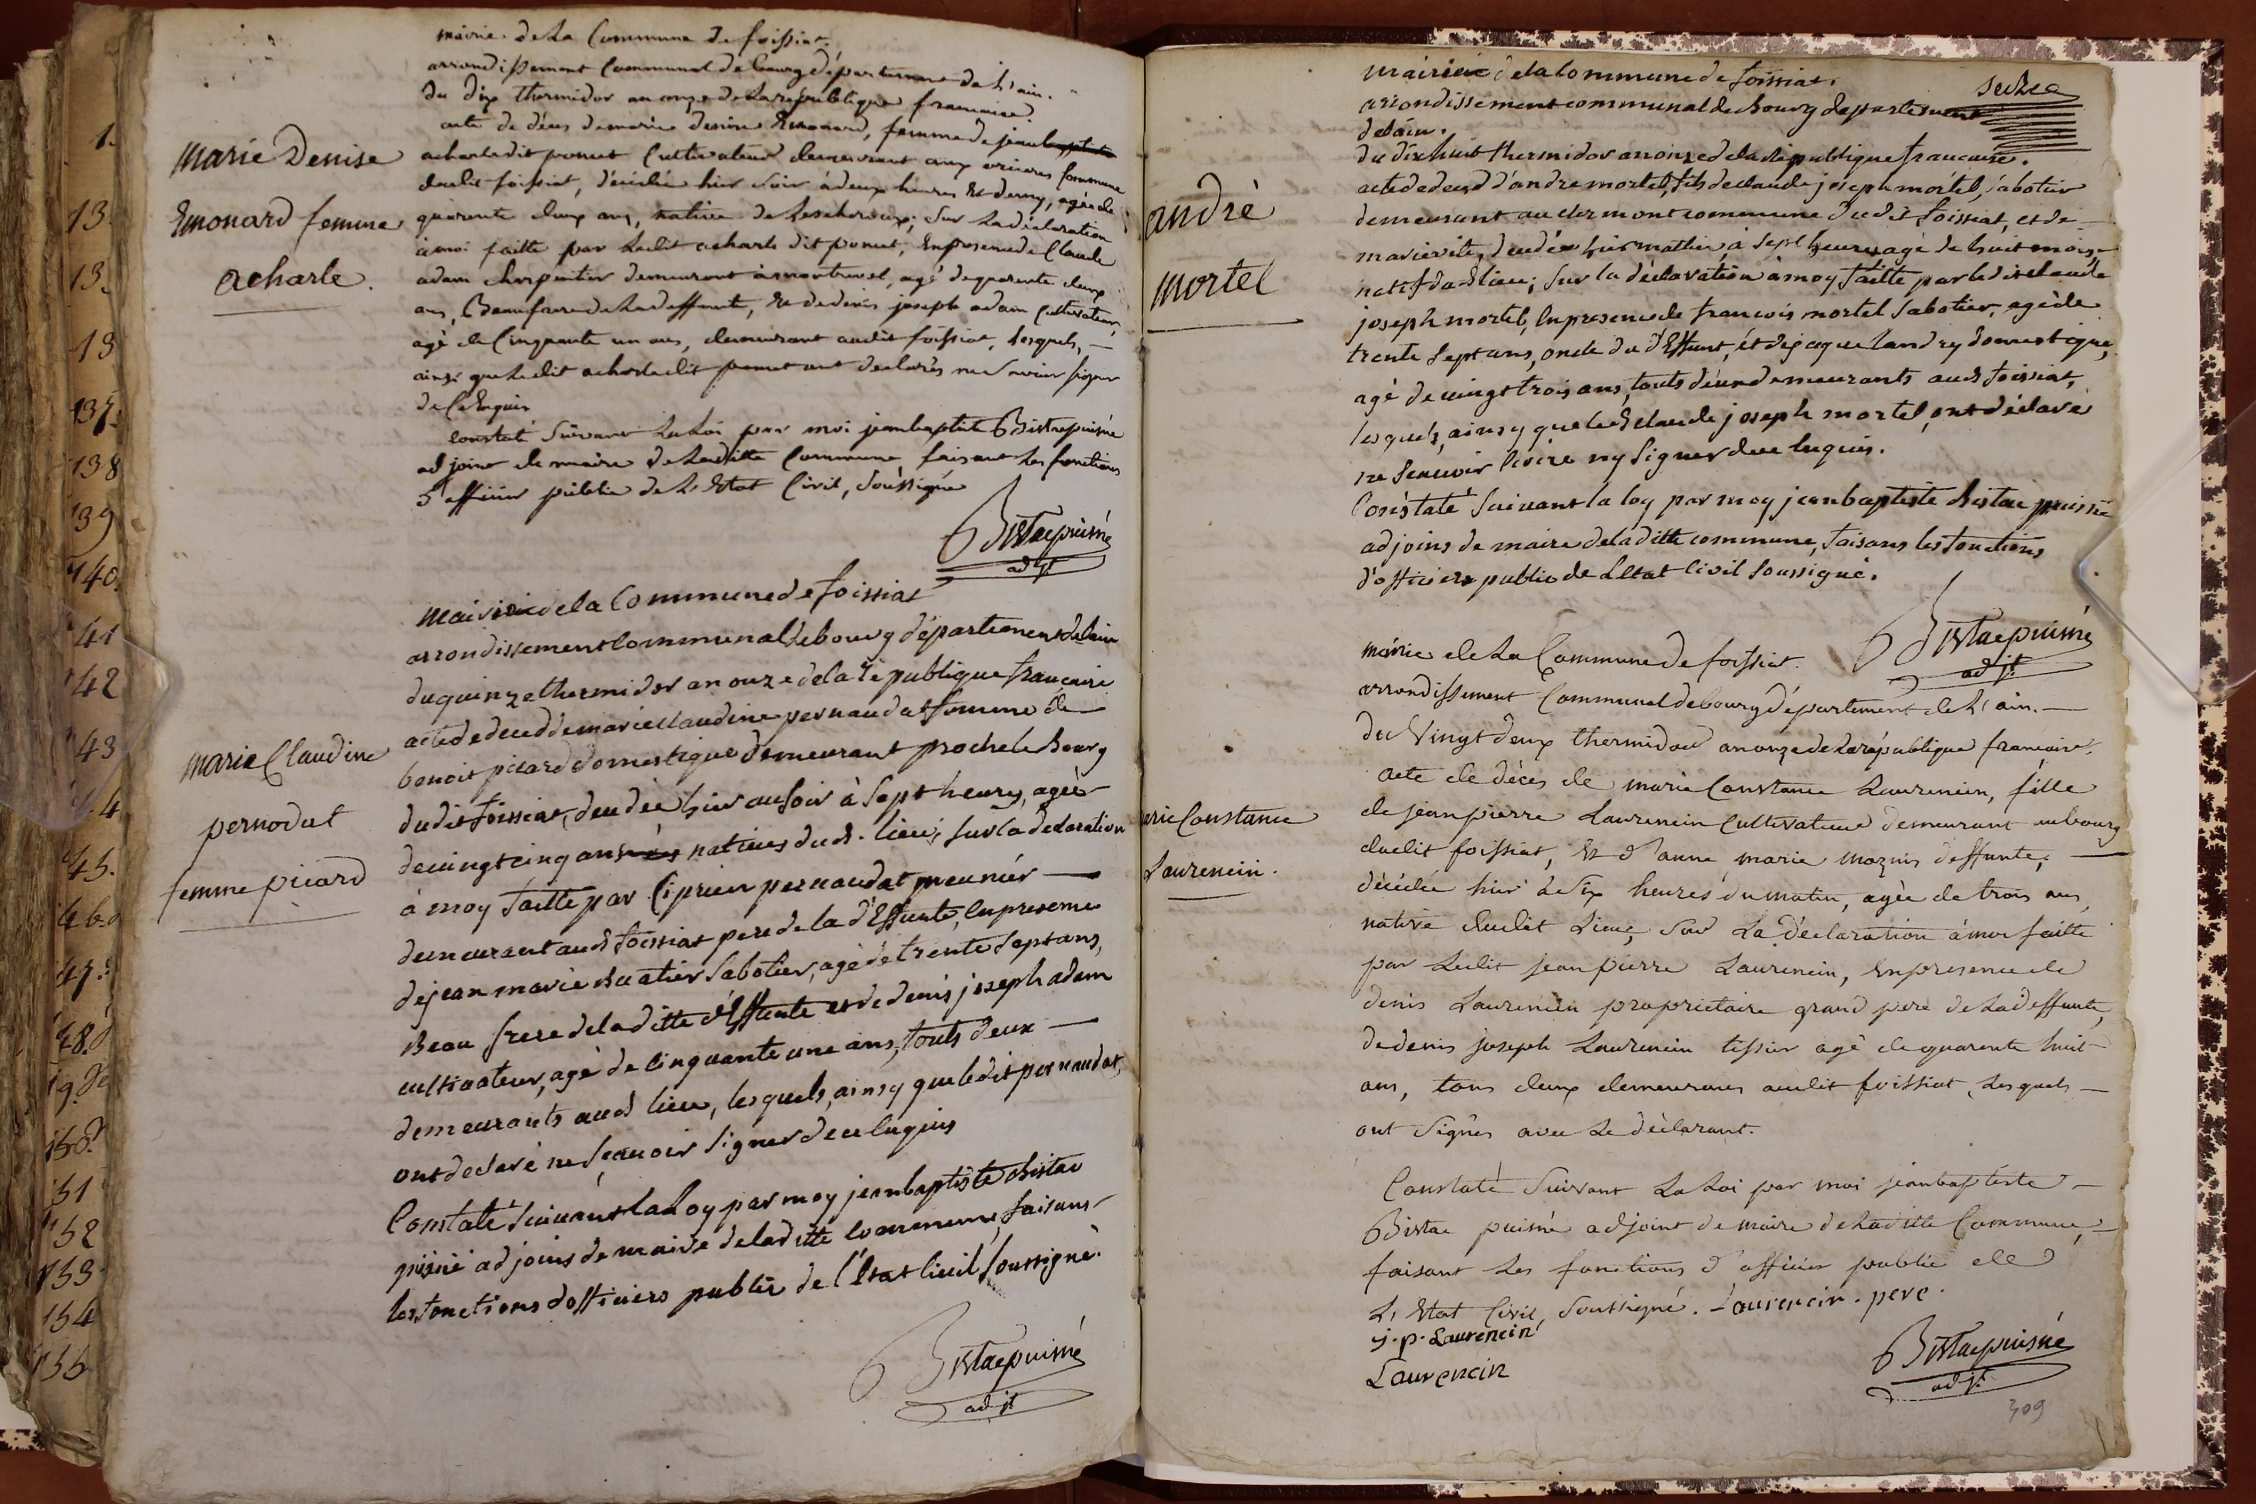 mairie de La Commune de foissiat.
arrondissement Communal de bourg département de L'ain.
du dix thermidor an onze de La république francaise.
acte de décès de marie denise Emonard, femme de jean baptiste
acharle dit poncet Cultivateur demeurant aux communes
dudit foissiat, décédée hier soir à deux heures Et demy, agée de
quarente deux ans, native de Lescheroux; Sur La déclaration
à moi faitte par Ledit acharle dit poncet, En présence de Claude
adam charpentier demeurant à montrevel, agé de quarente deux
ans, Beaufrere de La deffunte, Et de denis joseph adam Cultivateur,
agé de Cinquante un ans, demeurant audit foissiat, Lesquels,
ainsi que Ledit acharle dit poncet ont declarés ne Savoir signer
de Ce Enquis
Constaté Suivant La Loi par moi jean baptiste Bistac puisné
adjoint de maire de Laditte Commune faisant Les fonctions
d'officier public de L'Etat Civil, Soussigné
Bistac puisné
adjt
Marie Denise
Emonard femme
acharle.
Mairie de la Commune de foissiat
arrondissement Communal de bourg département de lain
du quinze thermidor an onze de la république francaise
acte de deced de marie claudine pernaudat femme de
benoit picard domestique demeurant proche le Bourg
dudit foissiat, decedée hier au soir à Sept heures, agée
de vingt cinq ans natives dud. lieu; sur la declaration
à moy faitte par Ciprien pernaudat meunier
demeurant aud foissiat pere de la d'Effunte, En presence
de jean marie Buatier Sabotier, agé de trente Sept ans,
Beau frere de la ditte d'Effunte et de denis joseph adam
cultivateur, agé de Cinquante une ans, touts deux
demeurants aud lieu, lesquels, ainsy que ledit pernaudat,
ont declaré ne Scavoir Signer de ce Enquis
Constaté Suivant la Loy par moy jean baptiste Bistac
puisné adjoins de maire de laditte commune, faisans
les fonctions d'officiers public de l'Etat Civil Soussigné.
Bistac puisné
adjt
marie Claudine
pernodat
femme picard
1.
13.
13.
13
137.
138
139
140.
41
42
43
4
45.
46.
47.
48.
49.
150.
151
152
153
154
155
Mairie de la Commune de foissiat.
arrondissement communal de Bourg departement
delain.
du dix huit thermidor an onze de la République francaise.
acte de deced d'andre mortel, fils de claude joseph mortel, Sabotier
demeurant au clermont commune dudit foissiat, et de
marie vite, decedé hier mattin, à Sept heures agé de huit mois,
natif dud lieu; Sur la déclaration à moy faitte par le dit claude
joseph mortel, En presence de francois mortel Sabotier, agé de
trente Sept ans, oncle du d'Effunt, et de jaque landry domestique,
agé de vingt trois ans, touts deux demeurants aud foissiat,
lesquels, ainsy que led claude joseph mortel, ont déclaré
ne Scavoir Ecrire ny Signer de ce Enquis.
Constaté Suivant la loy par moy jean baptiste Bistac puisné
adjoins de maire de la ditte commune, faisans les fonctions
d'officiers public de L'Etat Civil Soussigné.
Bistac puisné
adjt.
andré
mortel
mairie de La Commune de foissiat.
arrondissement Communal de bourg département de L'ain.
du Vingt deux thermidor an onze de La république francaise.
acte de décès de marie Constance Laurencin, fille
de jean pierre Laurencin Cultivateur demeurant au bourg
dudit foissiat, Et d'anne marie mazuis deffunte,
décédée hier à Six heures du matin, agée de trois ans,
native dudit Lieu, Sur La déclaration à moi faitte
par Ledit jean pierre Laurencin, En presence de
denis Laurencin proprietaire grand pere de La deffunte,
de denis joseph Laurencin tissier agé de quarente huit
ans, tous deux demeurans audit foissiat, Lesquels
ont Signés avec Le déclarant.
Constaté Suivant La Loi par moi jean baptiste
Bistac puisné adjoint de maire de Laditte Commune,
faisant Les fonctions d'officier public de
L'Etat Civil, Soussigné. Laurencin. pere.
j. p. Laurencin
Laurencin
Bistac puisné
adjt.
309
Constance
Laurencin.